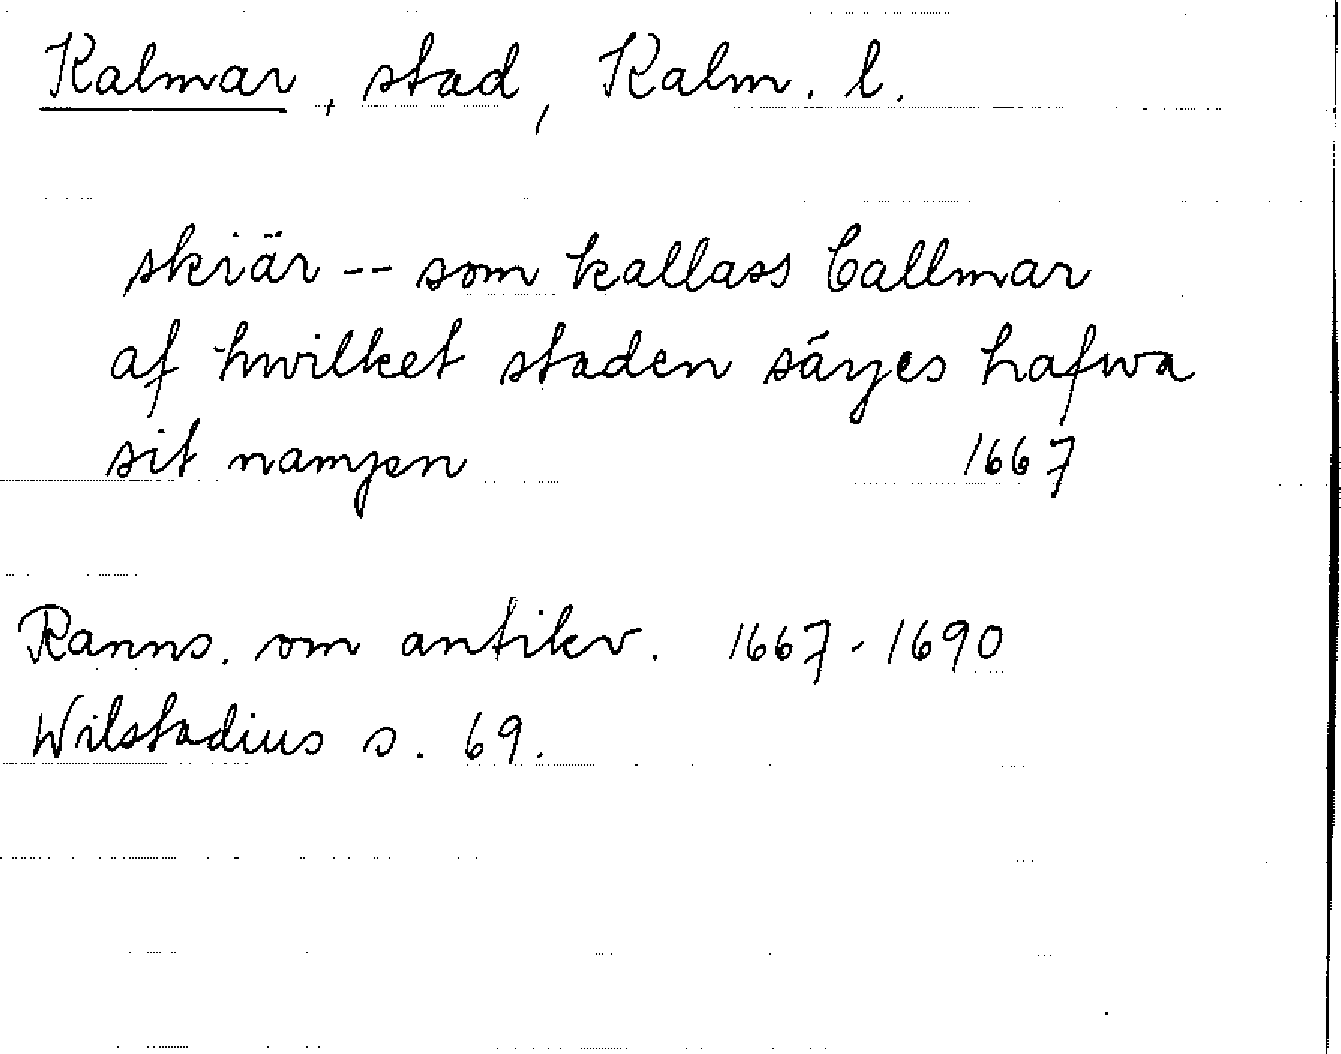 Kalmar, stad, Kalm. l.
skiär -- som kallass Callmar
af hwilket staden säyes hafwa
sit nampen 1667
Ranns. om antikv. 1667-1690
Wilstadius s. 69.